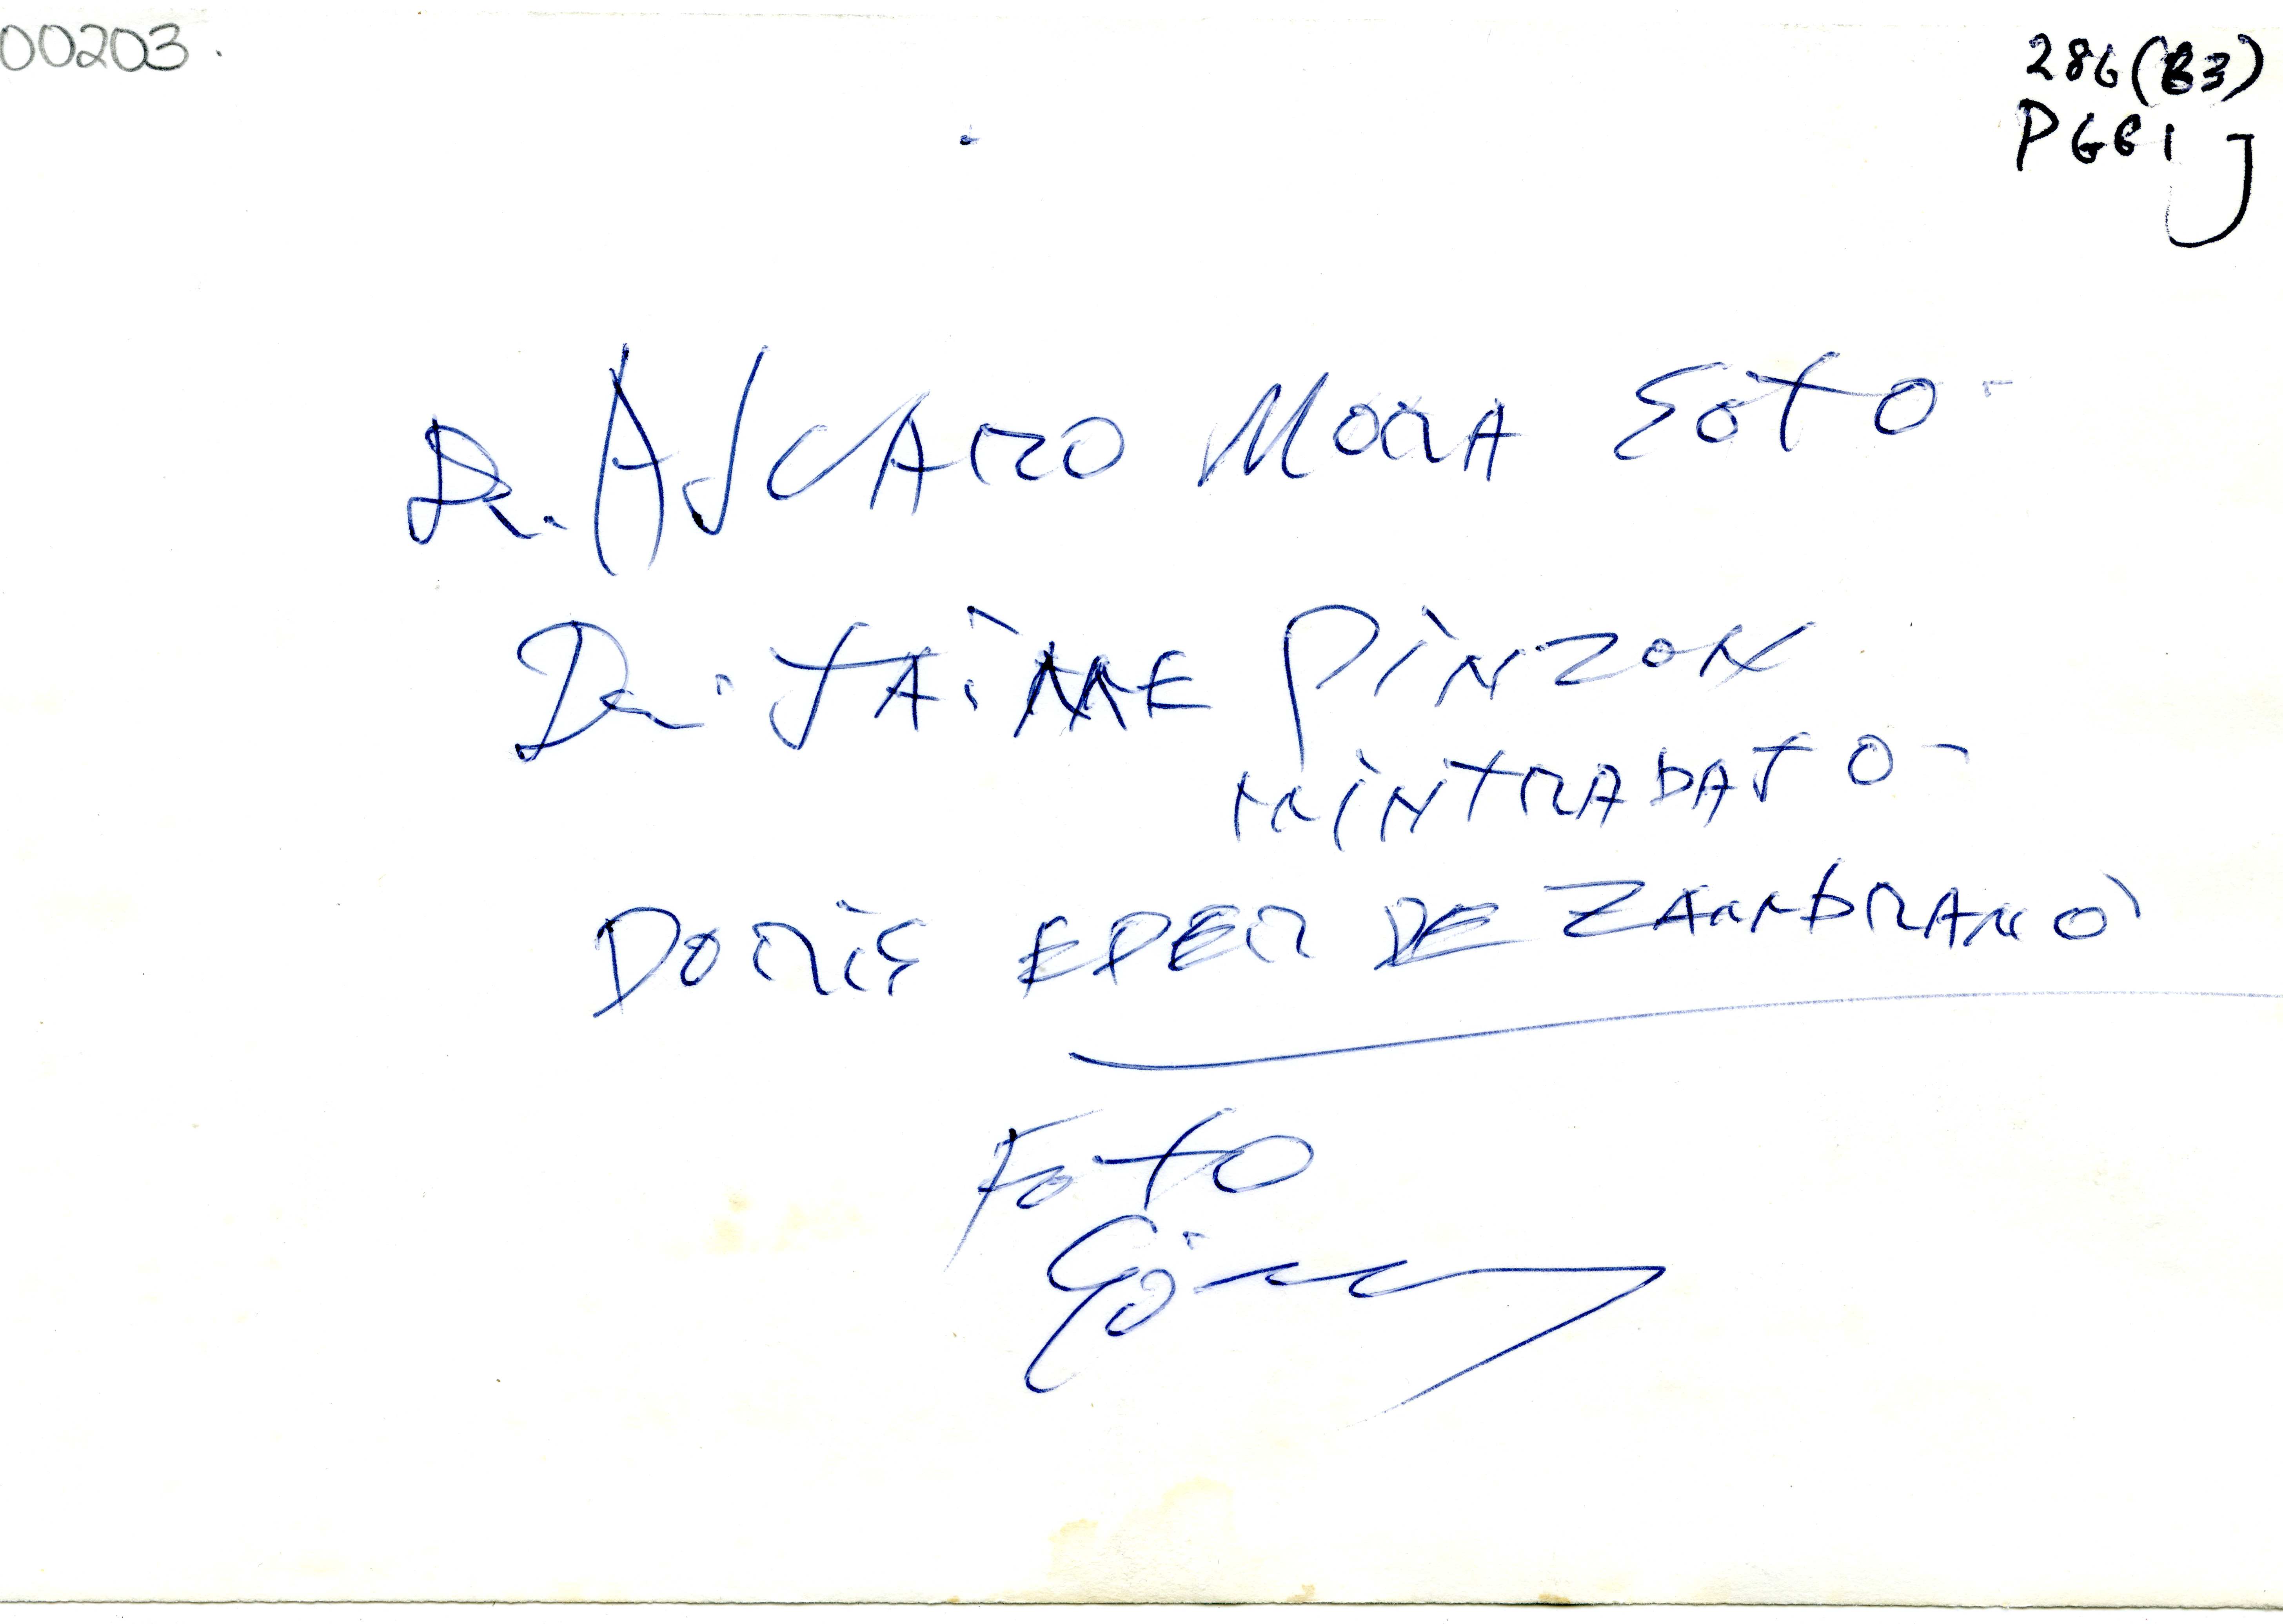 00203.
286(B3)
PGGIJ
Dr. ALVARO MORA SOTO-
Dr. JAIME PINZON
MINTRABAJO-
DORIS EDER DE ZAMBRANO
FOTO